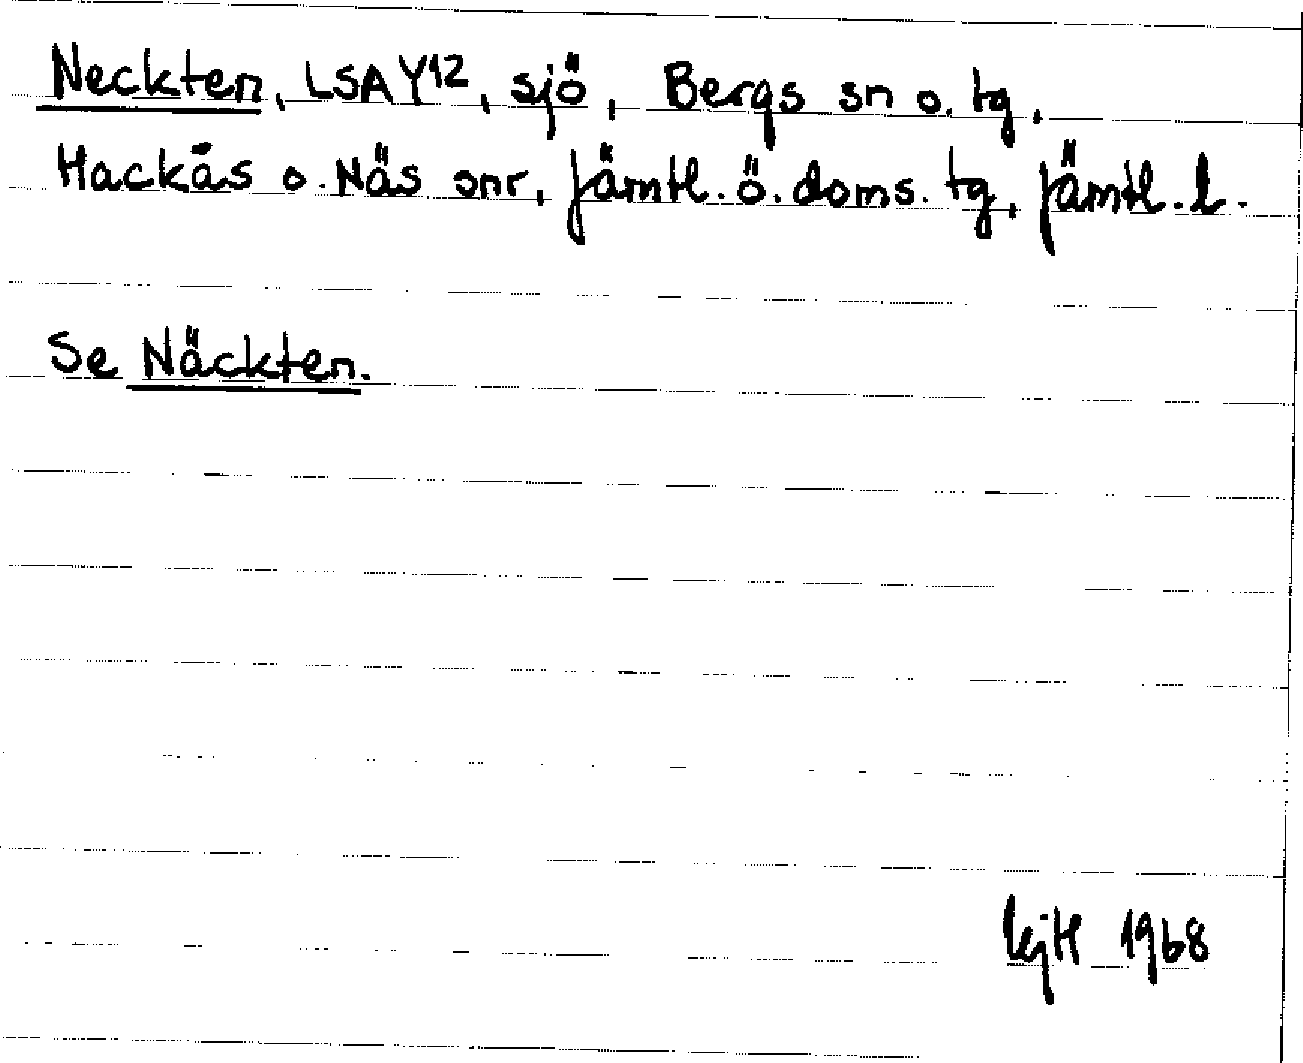 Neckten, LSA Y12, sjö, Bergs sn o. tg,
Hackås o. Näs snr, Jämtl. ö. doms. tg, Jämtl. l.
Se Näckten.
1968